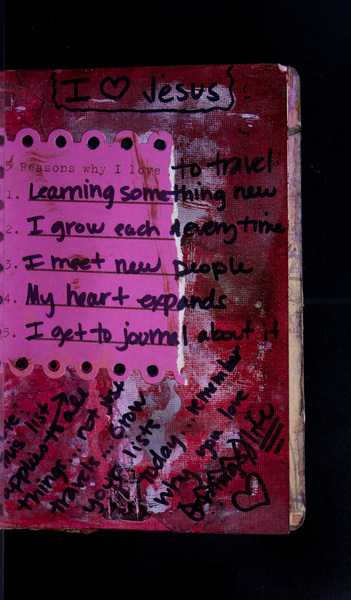 {I ♡ Jesus}
5 Reasons why I love to travel:
1. Learning something new
2. I grow each & every time
3. I meet new people
4. My heart expands
5. I get to journal about it
this list
applies to all
things... not just
travel... grow
your lists
today... remember
why you love